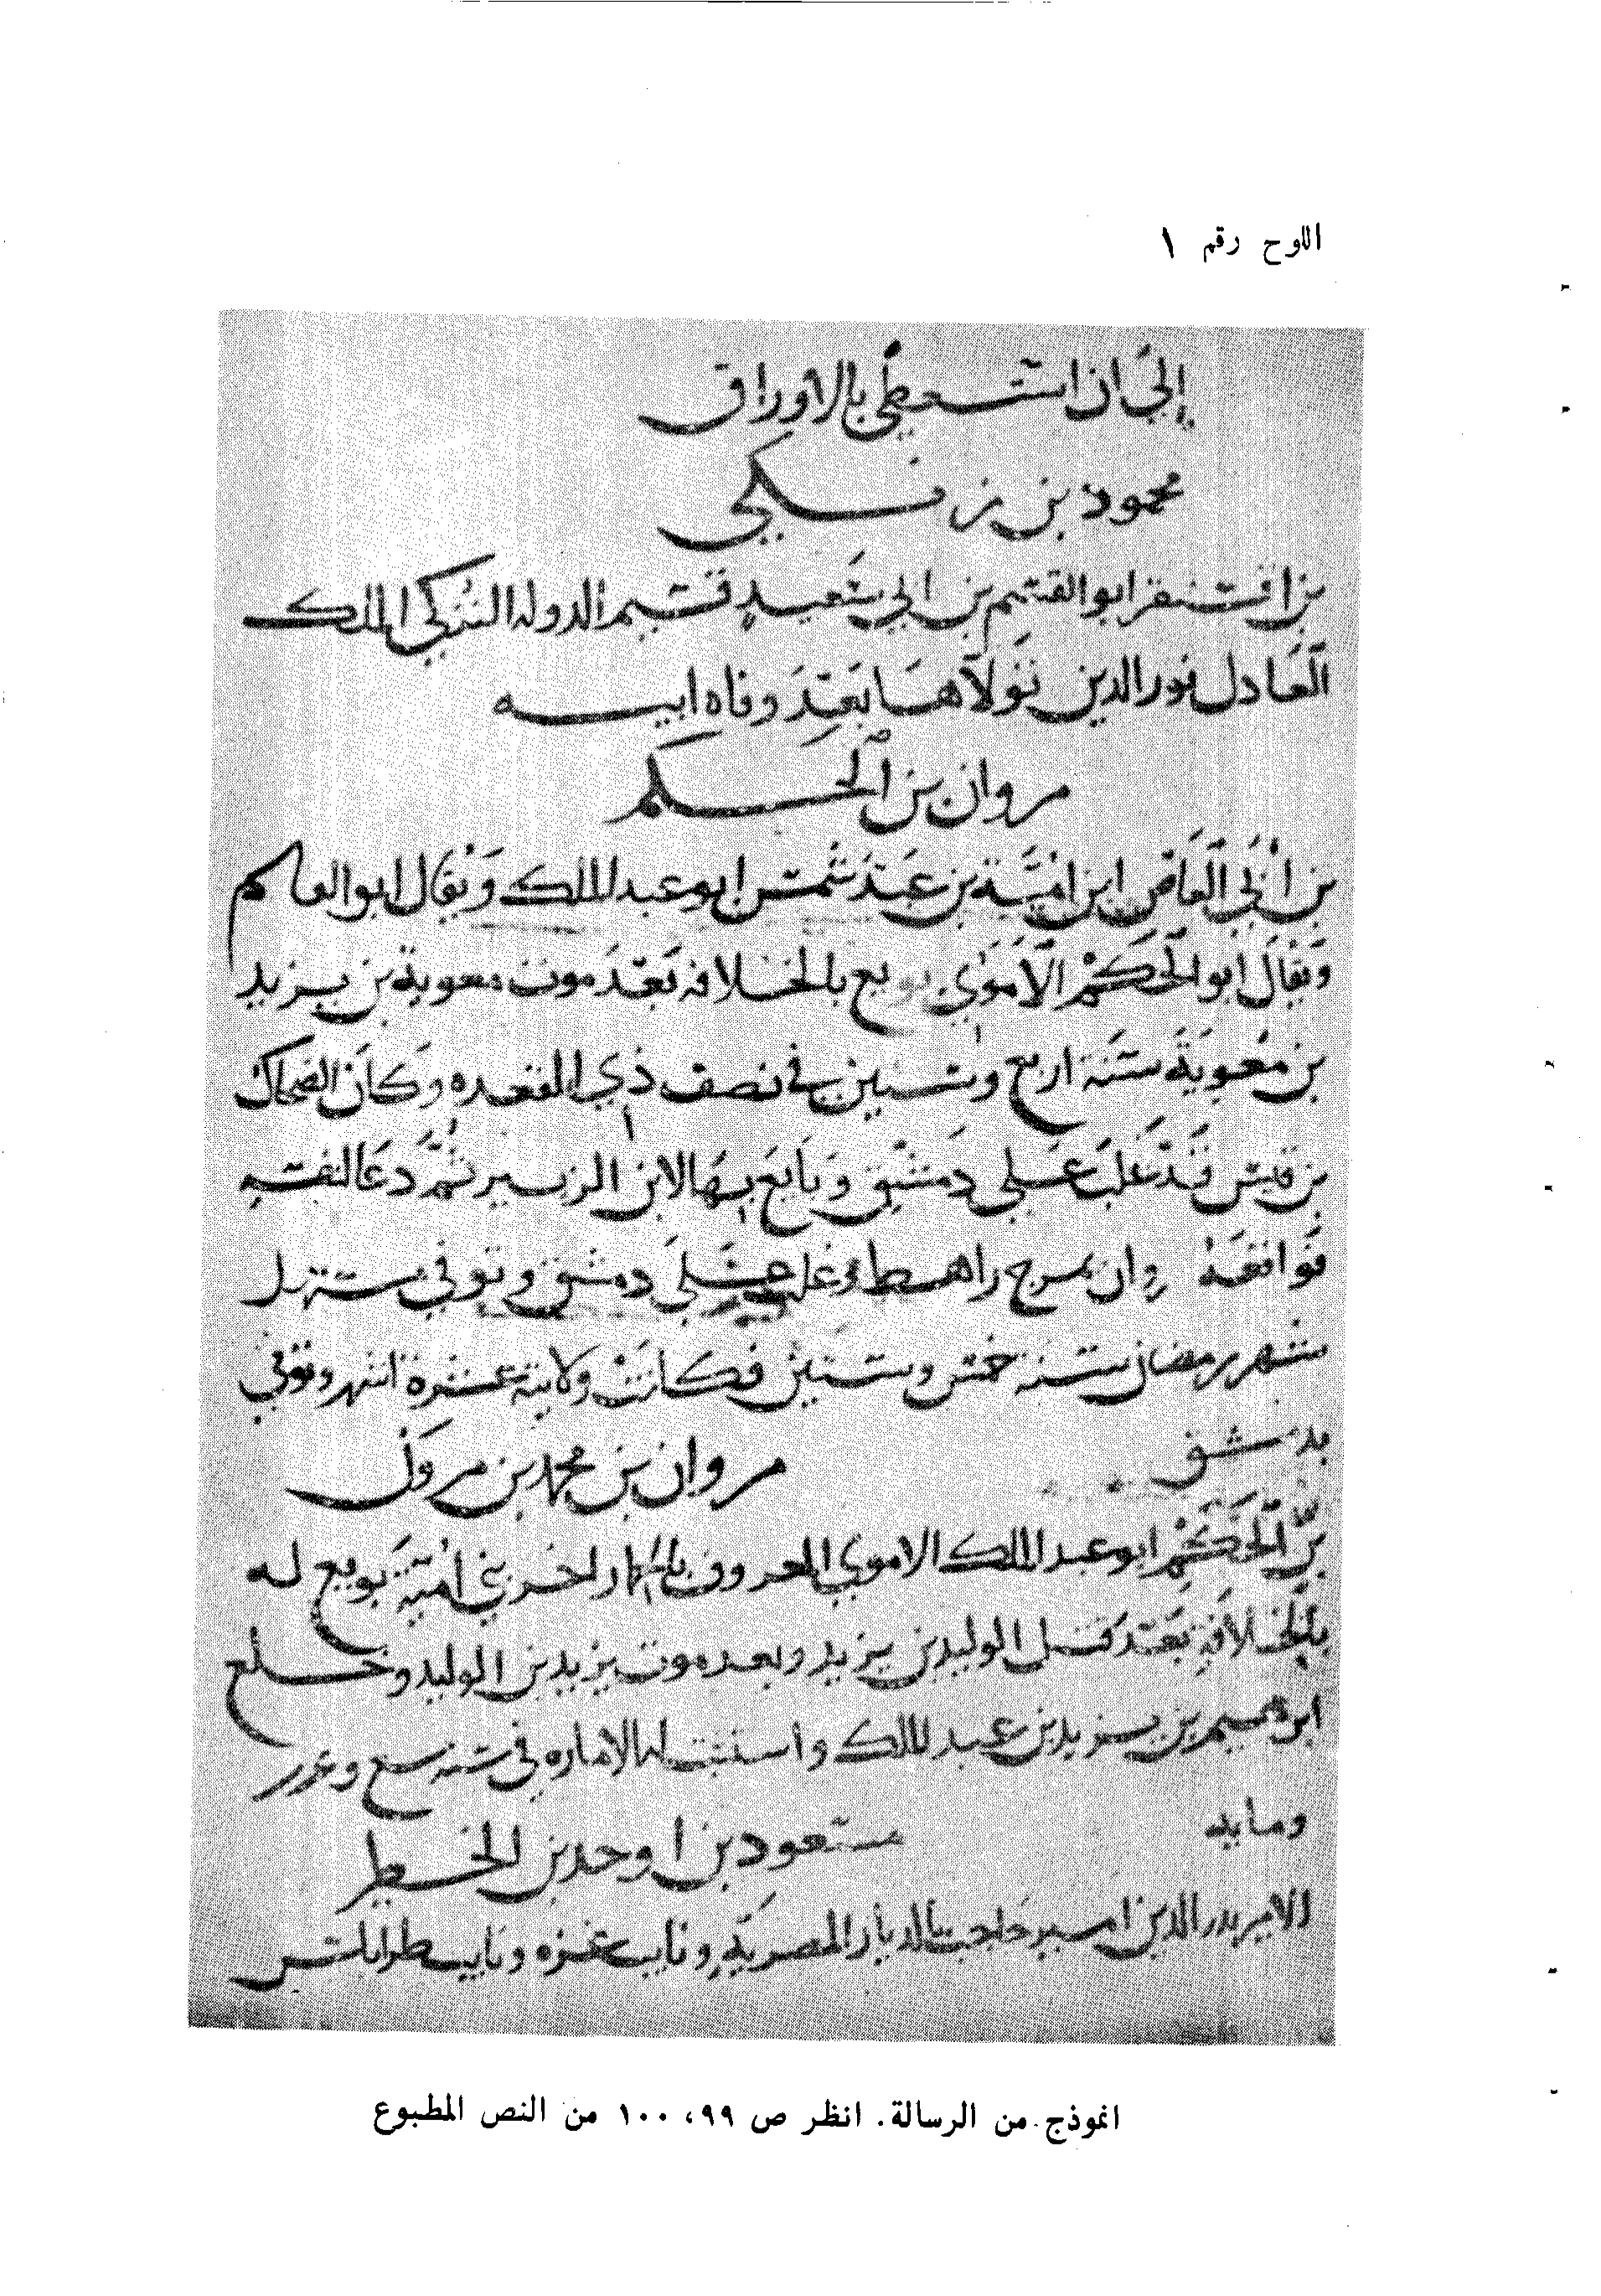 اللوح رقم ١
إلى ان استعطى بالاوراق
محمود بن زنكي
بن اقسنقر ابو القسم بن ابي سعيد قسيم الدوله التركي الملك
العادل نور الدين تولاها بعد وفاه ابيه
مروان بن الحكم
بن أبي العاص ابن امية بن عبد شمس ابو عبد الملك ويقال ابو القاسم
ويقال ابو الحكم الأموي بويع بالخلافه بعد موت معوية بن يزيد
بن معوية سنة اربع وستين في نصف ذي القعده وكان الضحاك
بن قيس قد غلب على دمشق وبايع بها لابن الزبير ثم دعا لنفسه
فواقعه بمرج راهط وغلب على دمشق وتوفي مستهل
شهر رمضان سنة خمس وستين فكانت ولايته عشرة اشهر وتوفي
بدمشق
مروان بن محمد بن مروان
بن الحكم ابو عبد الملك الاموي المعروف بالحمار اخر بني امية بويع له
بالخلافة بعد قتل الوليد بن يزيد وبعد موت يزيد بن الوليد وخلع
ابرهيم بن يزيد بن عبد الملك واستتب له الاماره في سنه سبع وعشرين
ومايه
مسعود بن اوحد بن الخطير
الامير بدر الدين امير حاجب بالديار المصرية ونايب غزه ونايب طرابلس
انموذج من الرسالة. انظر ص ٩٩، ١٠٠ من النص المطبوع